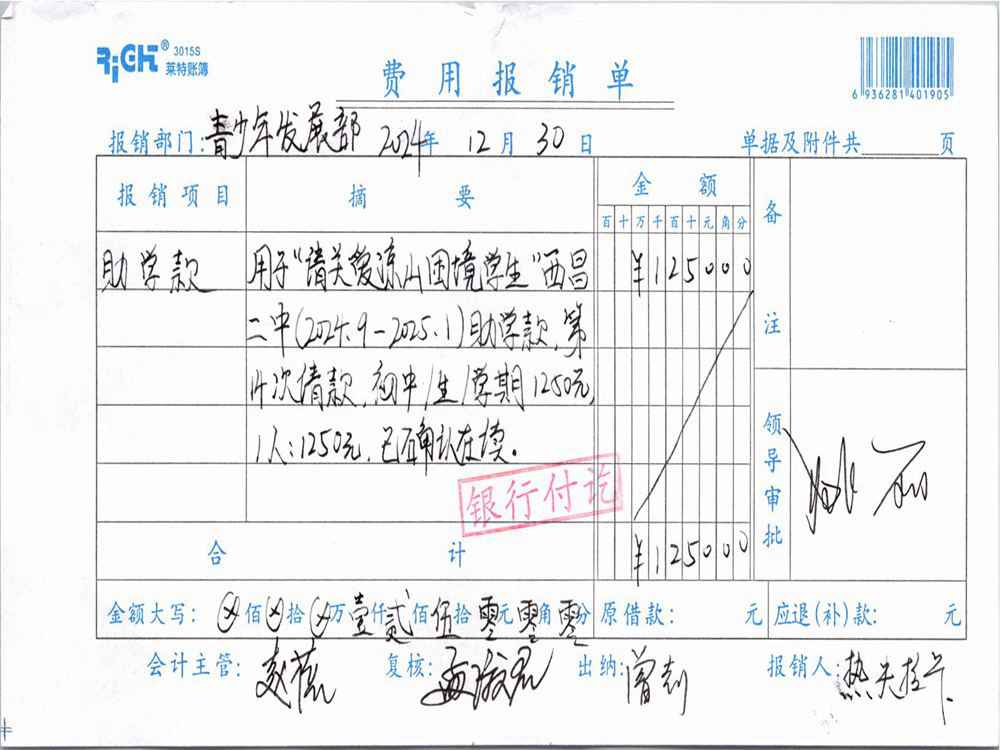 RiGHT® 3015S
莱特账簿
费用报销单
6 936281 401905
报销部门:青少年发展部 2024年 12月 30日 单据及附件共 页
报销项目 摘要 金额 备注
百十万千百十元角分
助学款 用于"请关爱凉山困境学生"西昌 ¥125000
二中(2024.9-2025.1)助学款,第
次请款,初中/生/学期1250元,
1人:1250元,已确认在读。
银行付讫
领导审批
合计 ¥125000
金额大写: ⊗佰⊗拾⊗万壹仟贰佰伍拾零元零角零分 原借款: 元 应退(补)款: 元
会计主管: 复核: 出纳: 曾 报销人:热夫拉卡